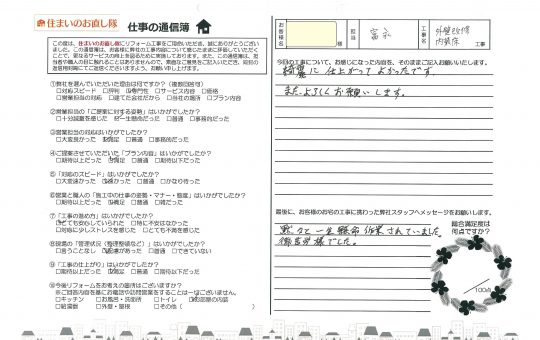 住まいのお直し隊 仕事の通信簿
この度は、住まいのお直し隊にリフォーム工事をご用命いただき、誠にありがとうございました。
①弊社を選んでいただいた理由は何ですか？（複数回答可）
□対応スピード □評判 専門性 □サービス内容 □価格
□営業担当の対応 □建てた会社だから □自社の場所 □プラン内容
②営業担当の「ご提案に対する姿勢」はいかがでしたか？
□十分誠意を感じた 一生懸命だった □普通 □事務的だった
③営業担当の対応はいかがでしたか？
□大変良かった 満足 □普通 □事務的だった
④ご提案させていただいた「プラン内容」はいかがでしたか？
□期待以上だった 満足 □普通 □期待以下だった
⑤「対応のスピード」はいかがでしたか？
□大変速かった 速かった □普通 □かなり待った
⑥営業と職人の「施工中の仕事の姿勢・マナー・態度」はいかがでしたか？
□期待以上だった 満足 □普通 □期待以下だった
⑦「工事の進め方」はいかがでしたか？
とても安心していられた □特に不安はなかった
□対応に少しストレスを感じた □とても不満を感じた
⑧現場の「管理状況（整理整頓など）」はいかがでしたか？
□言うことなし 満足 □普通だった □できていない
⑨「工事の仕上がり」はいかがでしたか？
□期待以上だった 満足 □普通 □期待以下だった
⑩今後リフォームをお考えの箇所はございますか？
※ご回答内容を基にお電話や訪問営業をすることは一切ございません。
□キッチン □お風呂・洗面所 □トイレ お部屋の内装
□給湯器 □外壁・屋根 □その他（ ）
お客様名
担当
富永
工事名
外壁改修
内装 工事
今回の工事について、お感じになった内容を、そのままご記入お願いいたします。
綺麗に仕上がってよかったです。
またよろしくお願いします。
最後に、お客様のお宅の工事に携わった弊社スタッフへメッセージをお願いします。
黙々と一生懸命作業されていました。
御苦労様でした。
総合満足度は
何点ですか？
／100点